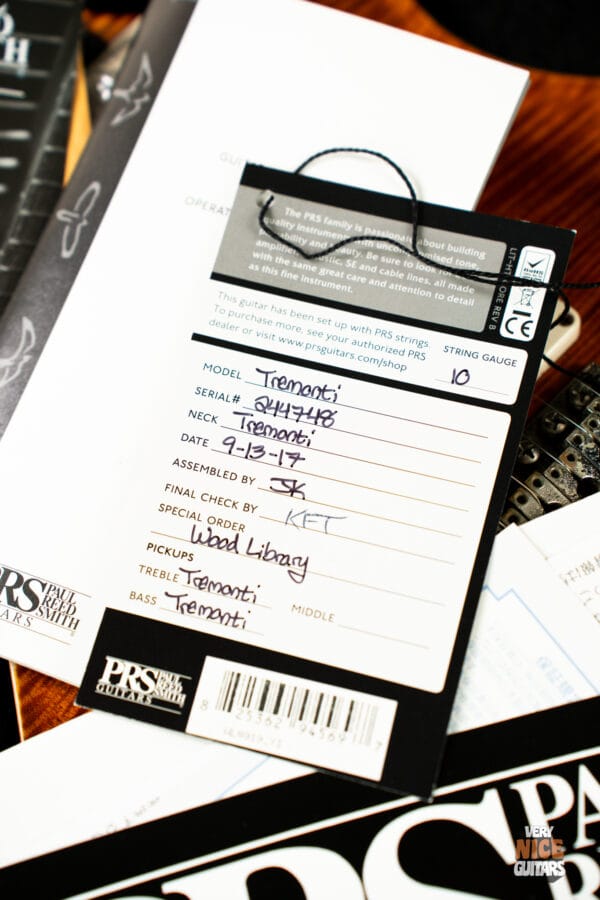 The PRS family is passionate about building
quality instruments with uncompromised tone,
playability and beauty. Be sure to look for
amplifier, acoustic, SE and cable lines, all made
with the same great care and attention to detail
as this fine instrument.
LIT-HT CORE REV B
RoHS
CE
This guitar has been set up with PRS strings.
To purchase more, see your authorized PRS
dealer or visit www.prsguitars.com/shop
STRING GAUGE
10
MODEL Tremonti
SERIAL# 244748
NECK Tremonti
DATE 9-13-17
ASSEMBLED BY JK
FINAL CHECK BY KFT
SPECIAL ORDER
Wood Library
PICKUPS
TREBLE Tremonti
BASS Tremonti MIDDLE
PRS PAUL REED SMITH
GUITARS
8 25362 94569 7
PRS PAUL REED SMITH
GUITARS
SMITH
OPERAT
PRS PA
VERY
NICE
GUITARS